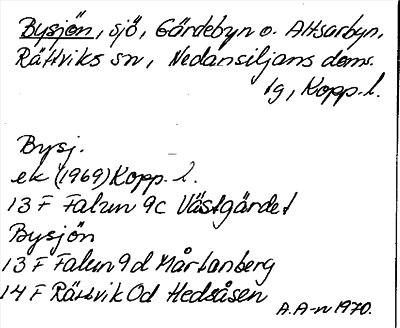 Bysjön, sjö, Gärdebyn o. Altsarbyn,
Rättviks sn, Nedansiljans doms.
tg, Kopp. l.
Bysj.
ek (1969) Kopp. l.
13 F Falun 9c Västgärdet
Bysjön
13 F Falun 9d Mårtanberg
14 F Rättvik 0d Hedsåsen
A.A-n 1970.